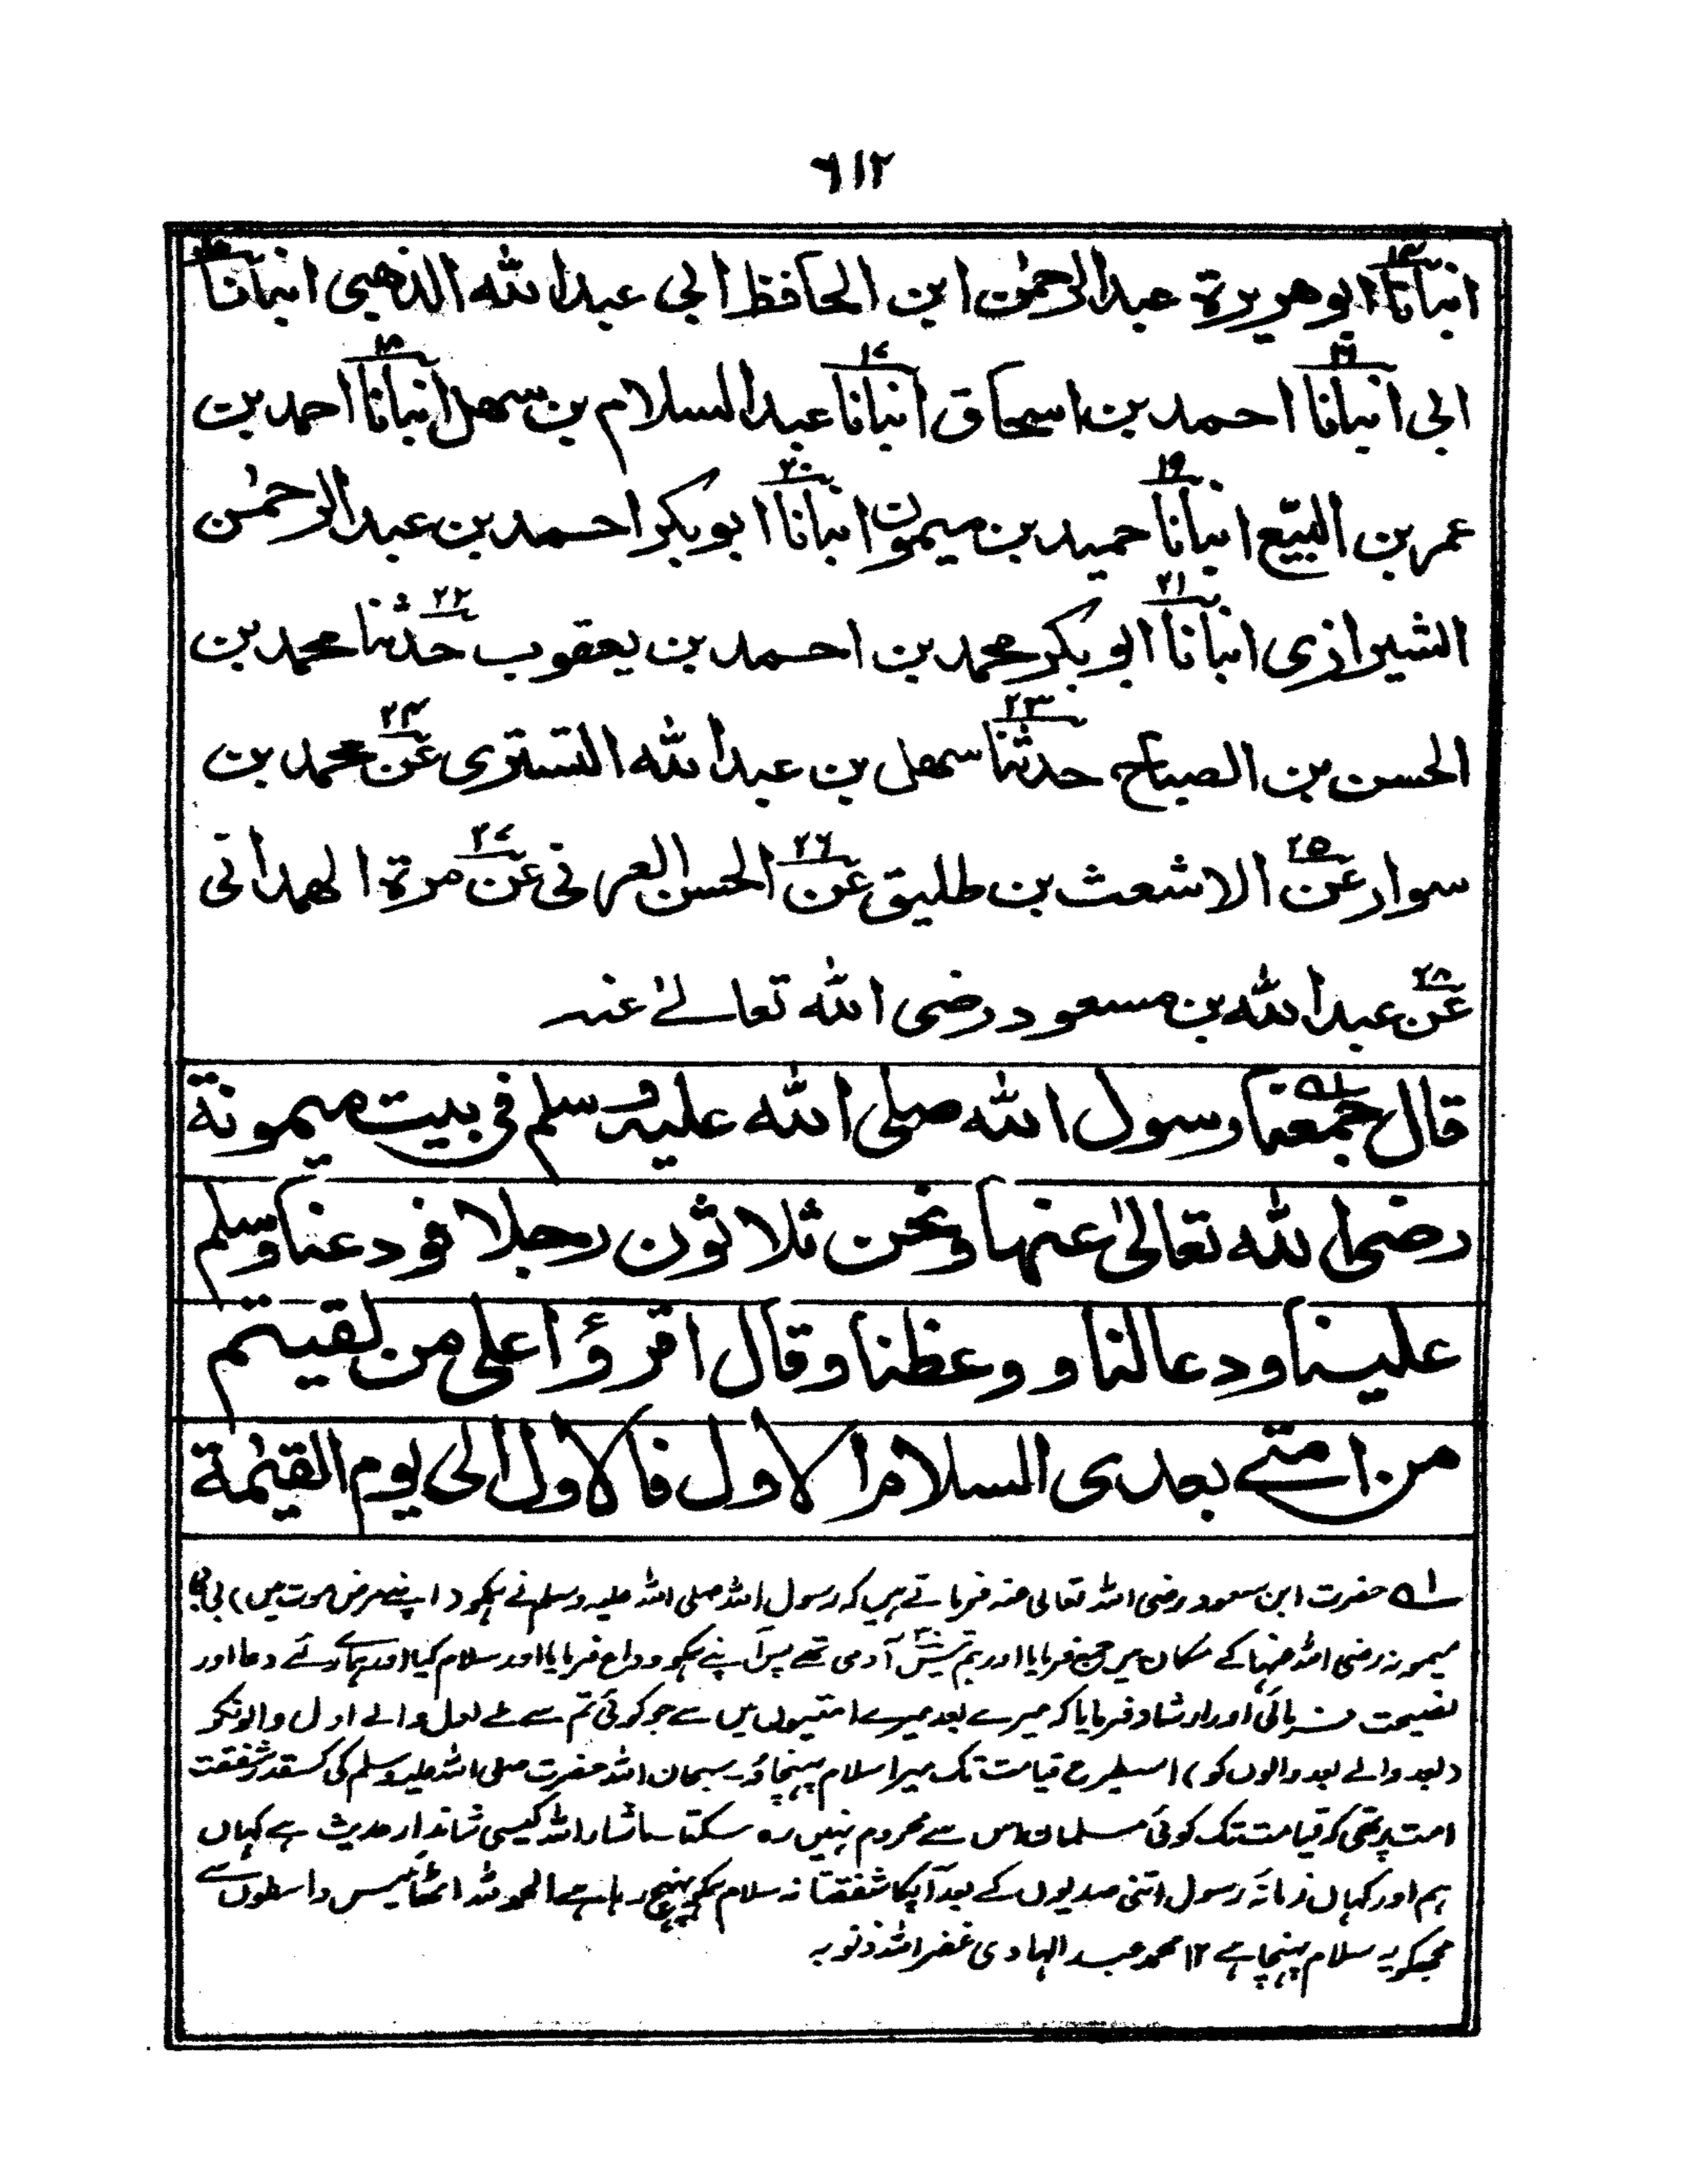 ٦١٢
انبأنا ابوهريرة عبدالرحمٰن ابن الحافظ ابي عبدالله الذهبي انبأنا
ابي انبأنا احمد بن اسحاق انبأنا عبدالسلام بن سهل انبأنا احمد بن
عمر بن البيّع انبأنا حميد بن ميمون انبأنا ابوبكر احمد بن عبدالرحمٰن
الشيرازي انبأنا ابوبكر محمد بن احمد بن يعقوب حدثنا محمد بن
الحسن بن الصباح حدثنا سهل بن عبدالله التستري عن محمد بن
سوار عن الاشعث بن طليق عن الحسن العرني عن مرة الهمداني
عن عبدالله بن مسعود رضي الله تعالىٰ عنه
قال جمعنا رسول الله صلى الله عليه وسلم في بيت ميمونة
رضي الله تعالىٰ عنها ونحن ثلاثون رجلا فودعنا وسلم
علينا ودعا لنا ووعظنا وقال اقرؤا على من لقيتم
من امتي بعدي السلام الاول فالاول الى يوم القيٰمة
لہ حضرت ابن مسعود رضی اللہ تعالی عنہ فرماتے ہیں کہ رسول اللہ صلی اللہ علیہ وسلم نے ہمکو (اپنے مرض موت میں) بی بی
میمونہ رضی اللہ عنہا کے مکان میں جمع فرمایا اور ہم تیس ۳۰ آدمی تھے پس آپنے ہمکو وداع فرمایا اور سلام کیا اور ہمارے لئے دعا اور
نصیحت فرمائی اور ارشاد فرمایا کہ میرے بعد میرے امتیوں میں سے جو کوئی تم سے ملے اول والے اول والونکو
(بعد والے بعد والوں کو) اسطرح قیامت تک میرا سلام پہنچاؤ۔ سبحان اللہ حضرت صلی اللہ علیہ وسلم کی کسقدر شفقت
امت پر تھی کہ قیامت تک کوئی مسلمان اس سے محروم نہیں رہ سکتا ماشاء اللہ کیسی شاندار حدیث ہے کہاں
ہم اور کہاں زمانۂ رسول اتنی صدیوں کے بعد آپکا شفقتانہ سلام ہمکو پہنچ رہا ہے الحمد للہ اٹھائیس واسطوں سے
مجھکو یہ سلام پہنچا ہے ۱۲ محمد عبد الہادی غفر اللہ ذنوبہ